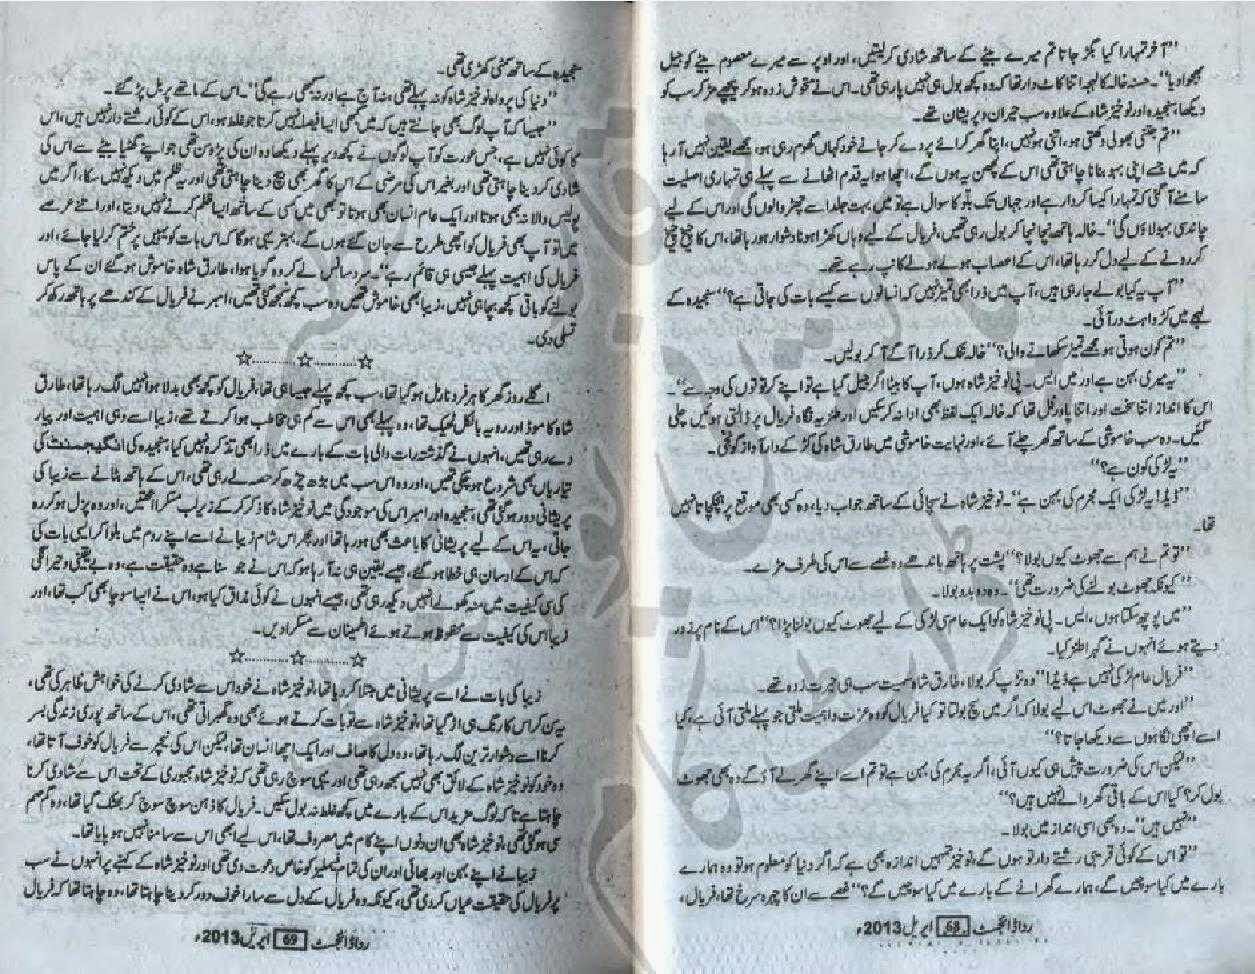 "آخر تمہارا کیا بگڑ جاتا تم میرے بیٹے کے ساتھ شادی کر لیتیں، اور اوپر سے میرے معصوم بیٹے کو جیل
بھجوا دیا"۔ حسنہ خالہ کا لہجہ اتنا کاٹ دار تھا کہ وہ کچھ بول ہی نہیں پا رہی تھی۔ اس نے خوف زدہ ہو کر پیچھے مڑ کر سب کو
دیکھا سنجیدہ اور نوخیز شاہ کے علاوہ سب حیران و پریشان تھے۔
"تم جتنی بھولی دکھتی ہو، اتنی ہو نہیں، اپنا گھر کرائے پر دے کر جانے خود کہاں گھوم رہی ہو، مجھے یقین نہیں آ رہا
کہ میں جسے اپنی بہو بنانا چاہتی تھی اس کے لچھن یہ ہوں گے، اچھا ہوا یہ قدم اٹھانے سے پہلے ہی تمہاری اصلیت
سامنے آ گئی کہ تمہارا کیسا کردار ہے اور جہاں تک پٹو کا سوال ہے تو میں بہت جلد اسے چھڑوالوں گی اور اس کے لیے
چاند سی بہو لاؤں گی"۔ خالہ ہاتھ نچا نچا کر بول رہی تھیں، فریال کے لیے وہاں کھڑا ہونا دشوار ہو رہا تھا، اس کا چیخ چیخ
کر رونے کے لیے دل کر رہا تھا، اس کے اعصاب ہولے ہولے کانپ رہے تھے۔
"آپ یہ کیا بولے جا رہی ہیں، آپ میں ذرا بھی تمیز نہیں کہ انسانوں سے کیسے بات کی جاتی ہے؟" سنجیدہ کے
لہجے میں کڑواہٹ در آئی۔
"تم کون ہوتی ہو مجھے تمیز سکھانے والی؟" خالہ تنک کر ذرا آگے آ کر بولیں۔
"یہ میری بہن ہے اور میں ایس۔ پی نوخیز شاہ ہوں، آپ کا بیٹا اگر جیل گیا ہے تو اپنے کرتوتوں کی وجہ سے"۔
اس کا انداز اتنا سخت اور اتنا پاورفل تھا کہ خالہ ایک لفظ بھی ادا نہ کر سکیں اور طنزیہ نگاہ فریال پر ڈالتی ہوئیں چلی
گئیں۔ وہ سب خاموشی کے ساتھ گھر چلے آئے، اور نہایت خاموشی میں طارق شاہ کی کڑک دار آواز گونجی۔
"یہ لڑکی کون ہے؟"
"ڈیڈ! یہ لڑکی ایک مجرم کی بہن ہے"۔ نوخیز شاہ نے سچائی کے ساتھ جواب دیا، وہ کسی بھی موقع پر ہچکچاتا نہیں
تھا۔
"تو تم نے ہم سے جھوٹ کیوں بولا؟" پشت پر ہاتھ باندھے وہ غصے سے اس کی طرف مڑے۔
"کیونکہ جھوٹ بولنے کی ضرورت تھی"۔ وہ دوبارہ بولا۔
"میں پوچھ سکتا ہوں، ایس۔ پی نوخیز شاہ کو ایک عام سی لڑکی کے لیے جھوٹ کیوں بولنا پڑا؟" اس کے نام پر زور
دیتے ہوئے انہوں نے گہرا طنز کیا۔
"فریال عام لڑکی نہیں ہے ڈیڈ!" وہ تڑپ کر بولا، طارق شاہ سمیت سب ہی حیرت زدہ تھے۔
"اور میں نے جھوٹ اس لیے بولا کہ اگر میں سچ بولتا تو کیا فریال کو وہ عزت و اہمیت ملتی جو پہلے ملتی آئی ہے، کیا
اسے اچھی نگاہوں سے دیکھا جاتا؟"
"لیکن اس کی ضرورت پیش ہی کیوں آئی، اگر یہ مجرم کی بہن ہے تو تم اسے اپنے گھر لے آؤ گے وہ بھی جھوٹ
بول کر؟ کیا اس کے باقی گھر والے نہیں ہیں؟"
"نہیں ہیں"۔ وہ بھی اسی انداز میں بولا۔
"تو اس کے کوئی قریبی رشتے دار تو ہوں گے، نوخیز تمہیں اندازہ بھی ہے کہ اگر دنیا کو معلوم ہو تو وہ ہمارے
بارے میں کیا سوچیں گے، ہمارے گھرانے کے بارے میں کیا سوچیں گے؟" غصے سے ان کا چہرہ سرخ تھا، فریال،
ردا ڈائجسٹ 68 اپریل 2013ء
سنجیدہ کے ساتھ گھنی کھڑی تھی۔
"دنیا کی پرواہ نوخیز شاہ کو نہ پہلے تھی، نہ آج ہے اور نہ کبھی رہے گی"۔ اس کے ماتھے پر بل پڑ گئے۔
"جیسا کہ آپ لوگ بھی جانتے ہیں کہ میں کبھی ایسا فیصلہ نہیں کرتا جو غلط ہو، اس کے کوئی رشتے دار نہیں ہیں، اس
کا کوئی نہیں ہے، جس عورت کو آپ لوگوں نے کچھ دیر پہلے دیکھا وہ ان کی پڑوسن تھی جو اپنے گھٹیا بیٹے سے اس کی
شادی کر دینا چاہتی تھی اور بغیر اس کی مرضی کے اس کا گھر بھی بیچ دینا چاہتی تھی اور یہ ظلم میں دیکھ نہیں سکا، اگر میں
پولیس والا نہ بھی ہوتا اور ایک عام انسان بھی ہوتا تو بھی میں کسی کے ساتھ ایسا ظلم کرنے نہیں دیتا، اور اتنے عرصے
میں تو آپ بھی فریال کو اچھی طرح سے جان گئے ہوں گے، بہتر یہی ہو گا کہ اس بات کو یہیں پر ختم کر لیا جائے، اور
فریال کی اہمیت پہلے جیسی ہی قائم رہے"۔ سرد سانس لے کر وہ گویا ہوا، طارق شاہ خاموش ہو گئے ان کے پاس
بولنے کو باقی کچھ بچا ہی نہیں، زیبا بھی خاموش تھیں وہ سب کچھ سمجھ گئی تھیں، امبر نے فریال کے کندھے پر ہاتھ رکھ کر
تسلی دی۔
☆............☆............☆
اگلے روز گھر کا ہر فرد نارمل ہو گیا تھا، سب کچھ پہلے جیسا ہی تھا، فریال کو کچھ بھی بدلا ہوا نہیں لگ رہا تھا، طارق
شاہ کا موڈ اور رویہ بالکل ٹھیک تھا، وہ پہلے بھی اس سے کم ہی مخاطب ہوا کرتے تھے، زیبا اسے وہی اہمیت اور پیار
دے رہی تھیں، انہوں نے گذشتہ رات والی بات کے بارے میں ذرا بھی تذکرہ نہیں کیا، سنجیدہ کی انگیجمنٹ کی
تیاریاں بھی شروع ہو چکی تھیں، اور وہ اس سب میں بڑھ چڑھ کر حصہ لے رہی تھی، اس کے ہاتھ بٹانے سے زیبا کی
پریشانی دور ہو گئی تھی، سنجیدہ اور امبر اس کی موجودگی میں نوخیز شاہ کا ذکر کر کے زیر لب مسکرا اٹھتیں، اور وہ پزل ہو کر رہ
جاتی، یہ اس کے لیے پریشانی کا باعث بھی ہو رہا تھا اور پھر اس شام زیبا نے اسے اپنے روم میں بلوا کر ایسی بات کی
کہ اس کے اوسان ہی خطا ہو گئے، جیسے یقین ہی نہ آ رہا ہو کہ اس نے جو سنا ہے وہ حقیقت ہے، وہ بے یقینی و حیرانگی
کی سی کیفیت میں منہ کھولے انہیں دیکھ رہی تھی، جیسے انہوں نے کوئی مذاق کیا ہو، اس نے ایسا سوچا بھی کب تھا، اور
زیبا اس کی کیفیت سے محظوظ ہوتے ہوئے اطمینان سے مسکرا دیں۔
☆............☆............☆
زیبا کی بات نے اسے پریشانی میں مبتلا کر دیا تھا، نوخیز شاہ نے خود اس سے شادی کرنے کی خواہش ظاہر کی تھی،
یہ سن کر اس کا رنگ ہی اڑ گیا تھا، نوخیز شاہ سے تو بات کرتے ہوئے بھی وہ گھبراتی تھی، اس کے ساتھ پوری زندگی بسر
کرنا اسے دشوار ترین لگ رہا تھا، وہ دل کا صاف اور ایک اچھا انسان تھا، لیکن اس کی نیچر سے فریال کو خوف آتا تھا،
وہ خود کو نوخیز شاہ کے لائق بھی نہیں سمجھ رہی تھی اور یہی سوچ رہی تھی کہ نوخیز شاہ مجبوری کے تحت اس سے شادی کرنا
چاہتا ہے تا کہ لوگ مزید اس کے بارے میں کچھ غلط نہ بول سکیں۔ فریال کا ذہن سوچ سوچ کر بھٹک گیا تھا، وہ گم صم
سی ہو گئی تھی، نوخیز شاہ بھی ان دنوں اپنے کام میں مصروف تھا، اس لیے ابھی اس سے سامنا نہیں ہو پایا تھا۔
زیبا نے اپنے بہن اور بھائی اور ان کی تمام فیملیز کو خاص دعوت دی تھی اور نوخیز شاہ کے کہنے پر انہوں نے سب
پر فریال کی حقیقت عیاں کر دی تھی، کیونکہ وہ فریال کے دل سے سارا خوف دور کر دینا چاہتا تھا، وہ چاہتا تھا کہ فریال
ردا ڈائجسٹ 69 اپریل 2013ء